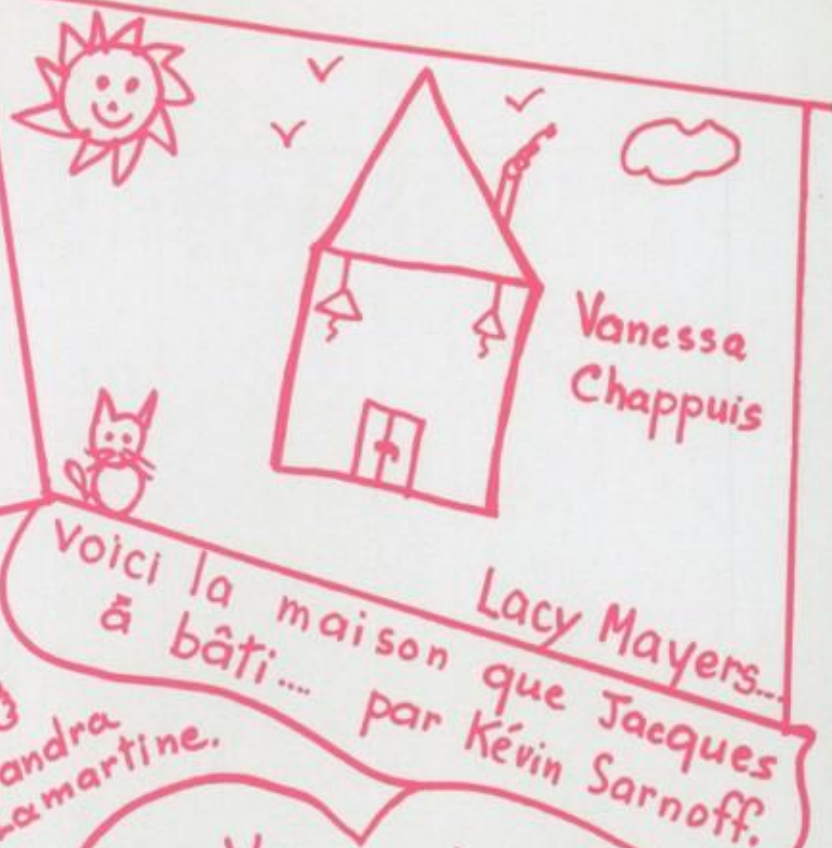 Vanessa
Chappuis
Lacy Mayers...
Voici la maison que Jacques
à bâti.... par Kévin Sarnoff.
andra
amartine.